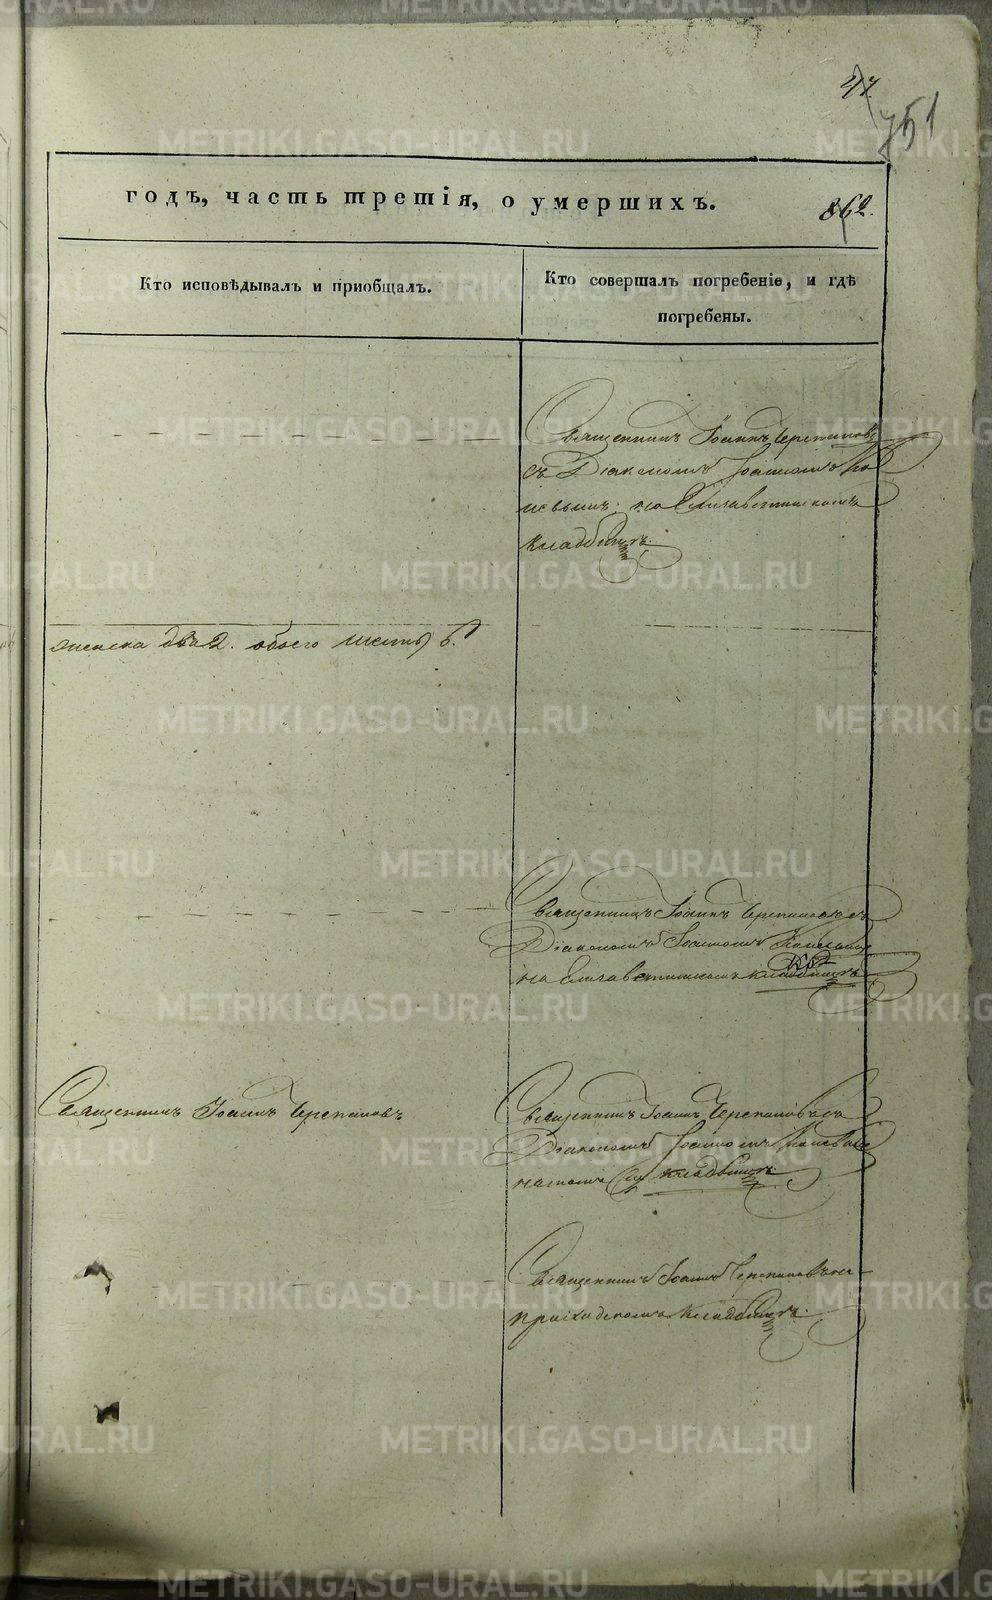 47.
751
годъ, часть третія, о умершихъ.
862.
Кто исповѣдывалъ и приобщалъ.
Кто совершалъ погребеніе, и гдѣ
погребены.
Священникъ Іоаннъ Черепановъ
съ Діакономъ Іоанномъ
на Елизаветинскомъ
кладбищѣ.
женска два 2. обоего шесть 6.
Священникъ Іоаннъ Черепановъ съ
Діакономъ Іоанномъ
на Елизаветинскомъ кладбищѣ
Священникъ Іоаннъ Черепановъ
Священникъ Іоаннъ Черепановъ съ
Діакономъ Іоанномъ
на томъ кладбищѣ.
Священникъ Іоаннъ Черепановъ на
приходскомъ кладбищѣ.
METRIKI.GASO-URAL.RU